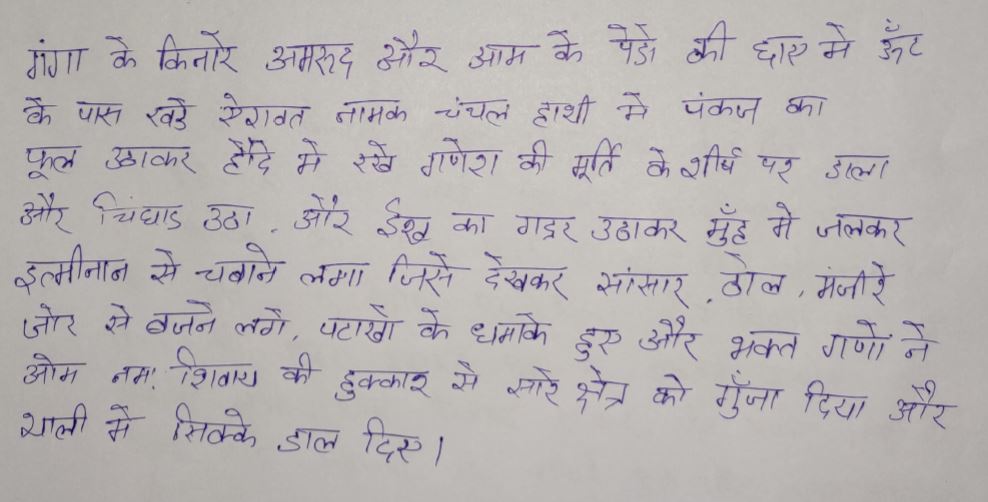 गंगा के किनोरे अमरूद और आम के पेडो की छाए मे ऊँट
के पास खडे ऐरावत नामक चंचल हाथी मे पंकज का
फूल उठाकर हौदे मे रखे गणेश की मूर्ति के शीर्ष पर डाला
और चिंघाड उठा . और ईख का गट्टर उठाकर मुँह मे जलकर
इत्मीनान से चबाने लगा जिसे देखकर सांसार , ढोल , मंजीरे
जोर से बजने लगे, पटाखो के धमाके हुए और भक्त गणो ने
ओम नम: शिवाय की हुक्कार से सारे क्षेत्र को गुँजा दिया और
थाली मे सिक्के डाल दिए।